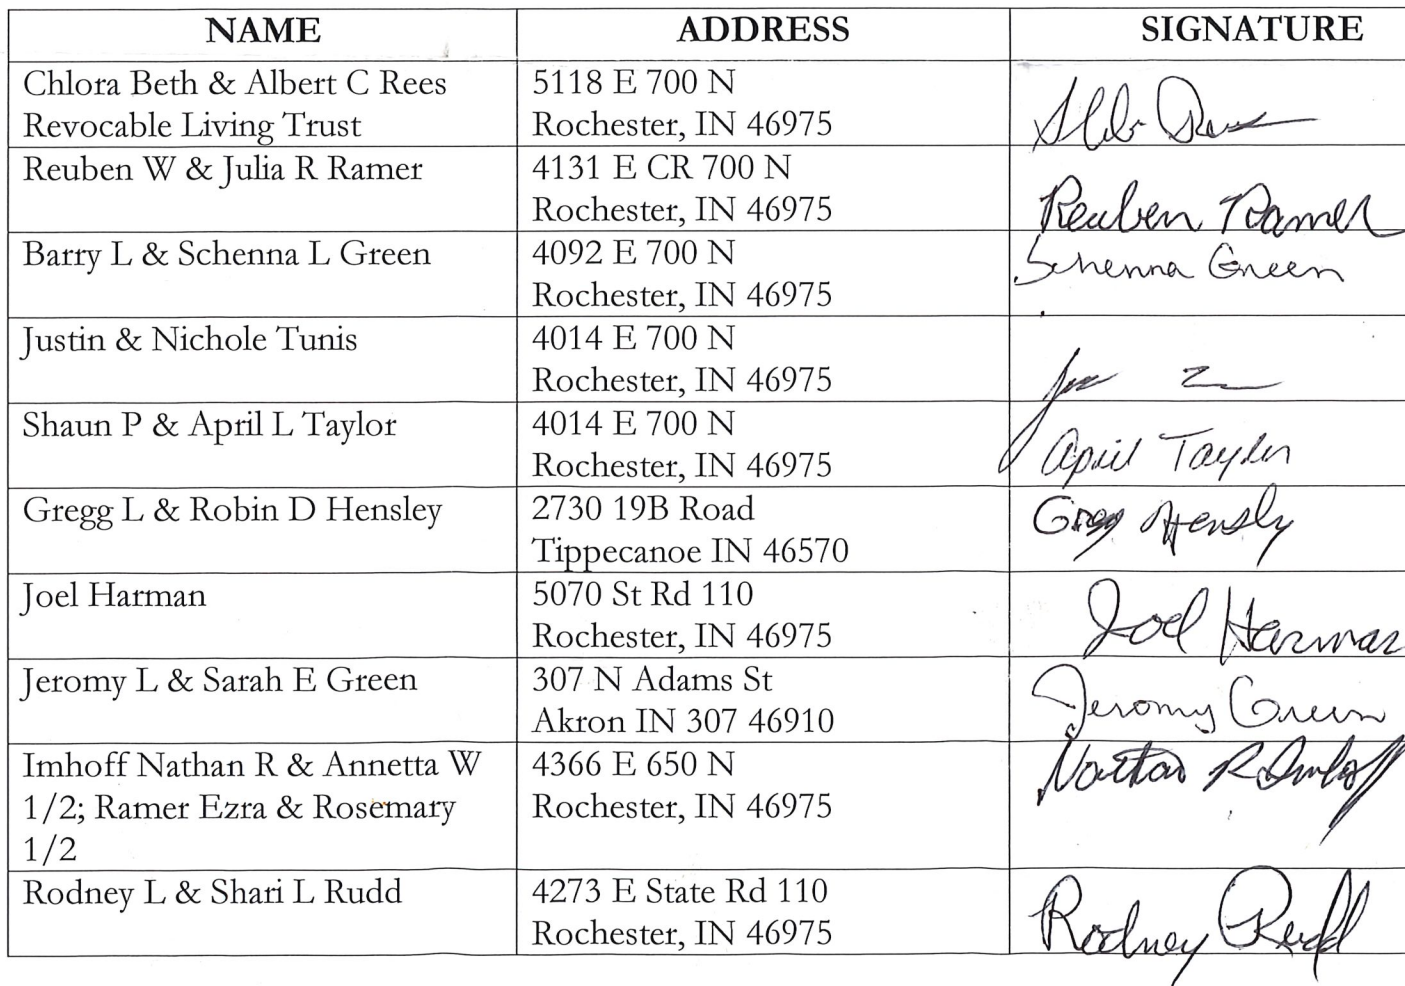 NAME ADDRESS SIGNATURE
Chlora Beth & Albert C Rees 5118 E 700 N
Revocable Living Trust Rochester, IN 46975
Reuben W & Julia R Ramer 4131 E CR 700 N
Rochester, IN 46975 Reuben Ramer
Barry L & Schenna L Green 4092 E 700 N Schenna Green
Rochester, IN 46975
Justin & Nichole Tunis 4014 E 700 N
Rochester, IN 46975
Shaun P & April L Taylor 4014 E 700 N
Rochester, IN 46975 April Taylor
Gregg L & Robin D Hensley 2730 19B Road Gregg Hensly
Tippecanoe IN 46570
Joel Harman 5070 St Rd 110
Rochester, IN 46975 Joel Harman
Jeromy L & Sarah E Green 307 N Adams St
Akron IN 307 46910 Jeromy Green
Imhoff Nathan R & Annetta W 4366 E 650 N Nathan R Imhoff
1/2; Ramer Ezra & Rosemary Rochester, IN 46975
1/2
Rodney L & Shari L Rudd 4273 E State Rd 110
Rochester, IN 46975 Rodney Rudd